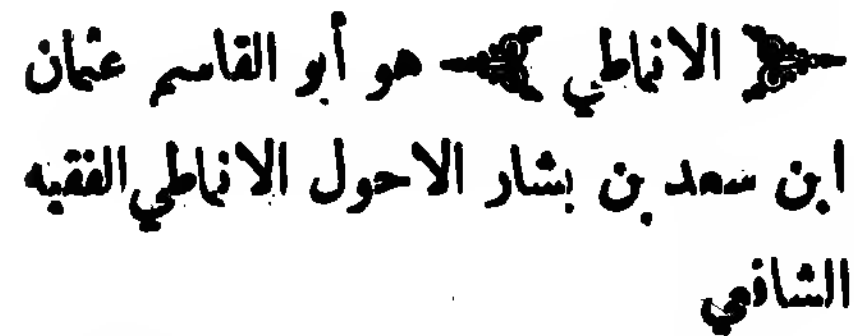 ﴿ الانماطي ﴾ هو أبو القاسم عثمان
ابن سعد بن بشار الاحول الانماطي الفقيه
الشافعي